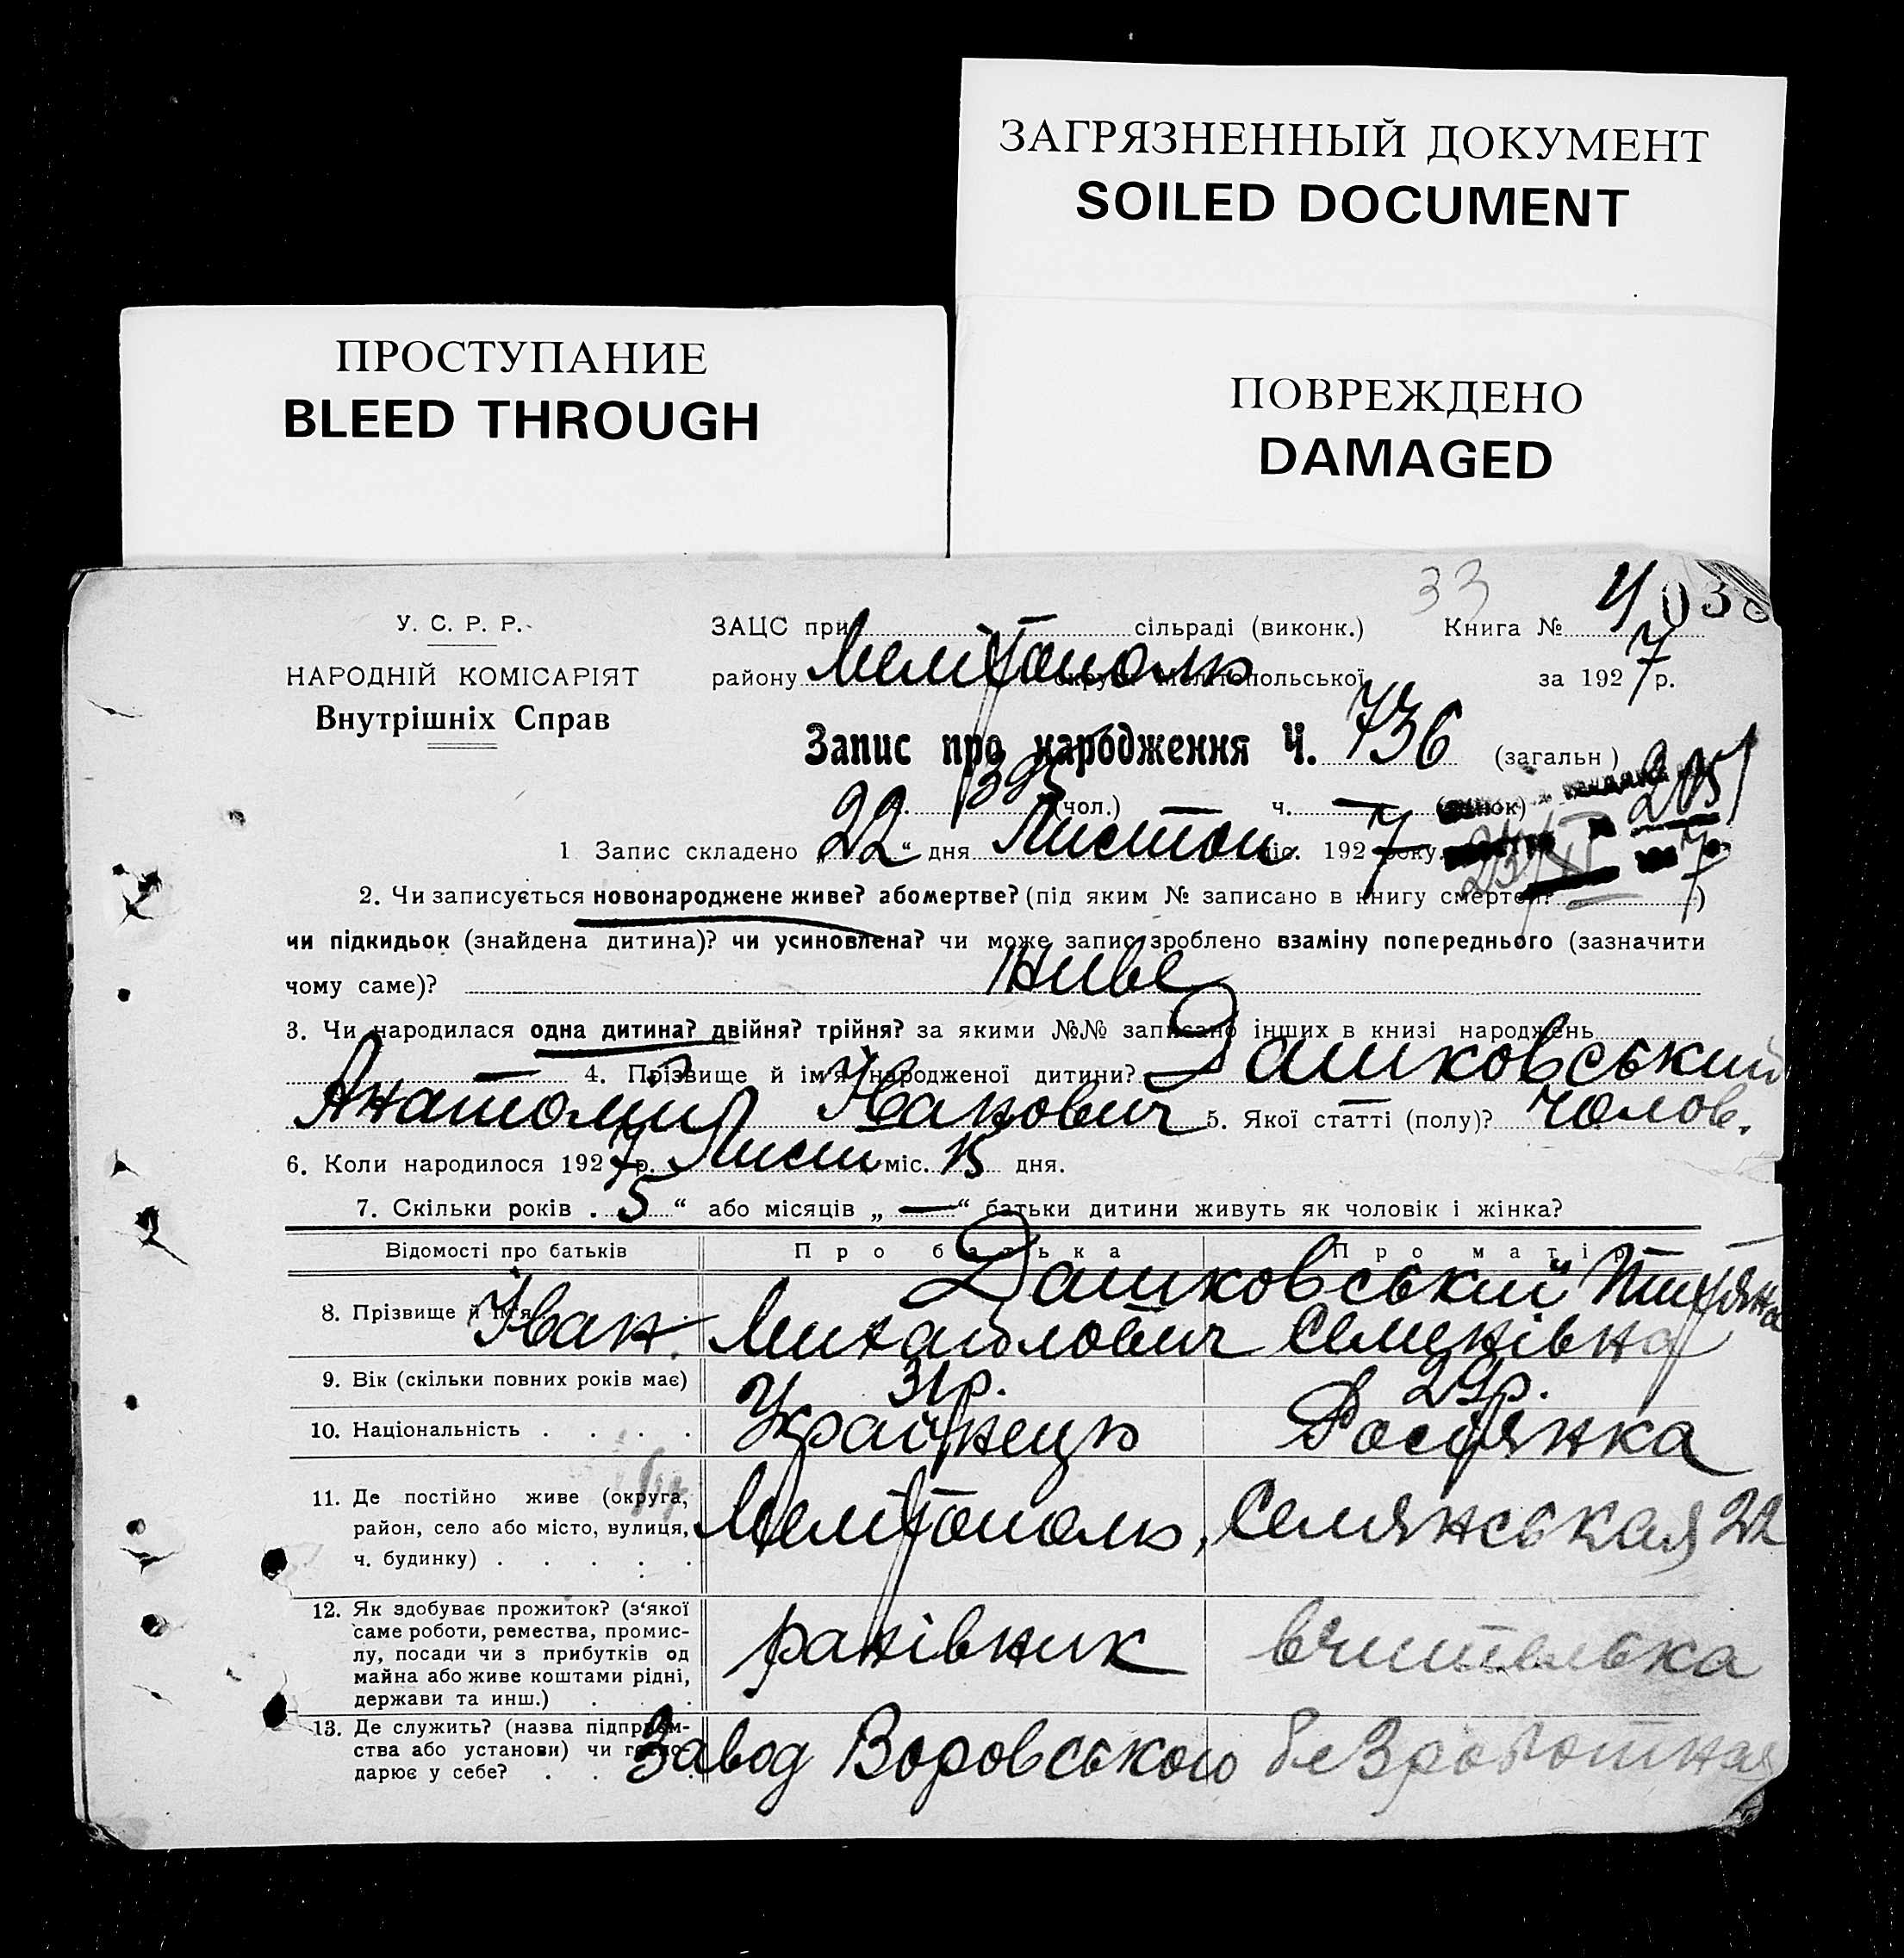 ЗАГРЯЗНЕННЫЙ ДОКУМЕНТ
SOILED DOCUMENT
ПРОСТУПАНИЕ
BLEED THROUGH
ПОВРЕЖДЕНО
DAMAGED
33
У. С. Р. Р.
НАРОДНІЙ КОМІСАРІЯТ
Внутрішніх Справ
ЗАЦС при сільраді (виконк.) Книга №
району Мелітополь округи Мелітопольської за 1927 р.
Запис про народження Ч. 736 (загальн)
395 (чол.) ч. — (жінок)
1 Запис складено „22“ дня Листоп міс. 1927 року.
2. Чи записується новонароджене живе? або мертве? (під яким № записано в книгу смертей? )
чи підкидьок (знайдена дитина)? чи усиновлена? чи може запис зроблено взаміну попереднього (зазначити
чому саме)? живе
3. Чи народилася одна дитина? двійня? трійня? за якими №№ записано інших в книзі народжень
— 4. Прізвище й ім'я народженої дитини? Дашковський
Анатолий Іванович 5. Якої статті (полу)? Чолов.
6. Коли народилося 1927 р. Лист міс. 15 дня.
7. Скільки років „5“ або місяців „—“ батьки дитини живуть як чоловік і жінка?
Відомості про батьків Про батька Про матір
8. Прізвище й ім'я Дашковський
Іван Михайлович Семенівна
9. Вік (скільки повних років має) 31 р. 29 р.
10. Національність . . . . Українець Росіянка
11. Де постійно живе (округа,
район, село або місто, вулиця,
ч. будинку) . . . . . Мелітополь, Семянськая 22
12. Як здобуває прожиток? (з'якої
саме роботи, ремества, промис-
лу, посади чи з прибутків од
майна або живе коштами рідні,
держави та инш.) . . . вчителька
13. Де служить? (назва підприєм-
ства або установи) чи госпо-
дарює у себе? . . Завод Воровського безроботная